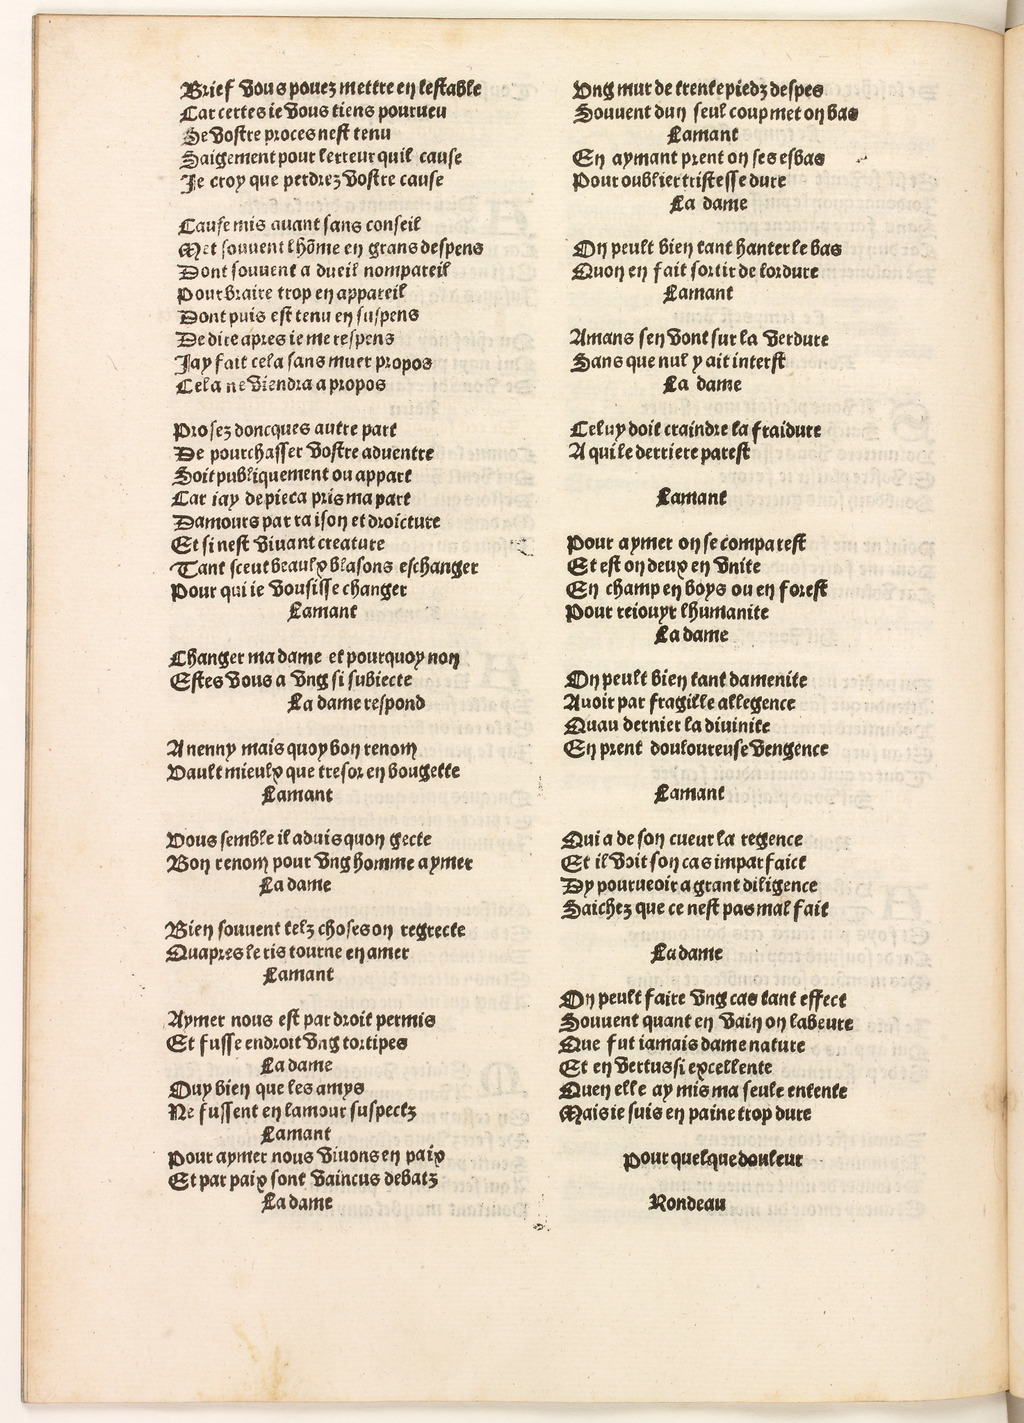 Brief vous pouez mettre en lestable
Car certes ie vous tiens pourueu
Se vostre proces nest tenu
Saigement pour lerreur quil cause
Je croy que perdrez vostre cause
Cause mis auant sans conseil
Met souuent lhōme en grans despens
Dont souuent a dueil nompareil
Pour braire trop en appareil
Dont puis est tenu en suspens
De dire apres ie me respens
Jay fait cela sans muer propos
Cela ne viendra a propos
Prosez doncques autre part
De pourchasser vostre aduentre
Soit publiquement ou appart
Car iay de pieca pris ma part
Damours par raison et droicture
Et si nest viuant creature
Tant sceut beaulx blasons eschanger
Pour qui ie vousisse changer
Lamant
Changer ma dame et pourquoy non
Estes vous a vng si subiecte
La dame respond
Anenny mais quoy bon renom
Vault mieulx que tresor en bougette
Lamant
Vous semble il aduis quon gecte
Bon renom pour vng homme aymer
La dame
Bien souuent telz choses on regrecte
Quapres le ris tourne en amer
Lamant
Aymer nous est par droit permis
Et fusse endroit vng tortipes
La dame
Ouy bien que les amys
Ne fussent en lamour suspectz
Lamant
Pour aymer nous viuons en paix
Et par paix sont vaincus debatz
La dame
Vng mur de trente piedz despes
Souuent dun seul coup met on bas
Lamant
En aymant prent on ses esbas
Pour oublier tristesse dure
La dame
On peult bien tant hanter le bas
Quon en fait sortir de lordure
Lamant
Amans sen vont sur la verdure
Sans que nul y ait interst
La dame
Celuy doit craindre la fraidure
A qui le derriere parest
Lamant
Pour aymer on se comparest
Et est on deux en vnite
En champ en boys ou en forest
Pour reiouyr lhumanite
La dame
On peult bien tant damenite
Auoir par fragille allegence
Quau dernier la diuinite
En prent douloureuse vengence
Lamant
Qui a de son cueur la regence
Et il voit son cas imparfaict
Dy pourueoir a grant diligence
Saichez que ce nest pas mal fait
La dame
On peult faire vng cas tant effect
Souuent quant en vain on labeure
Que fut iamais dame nature
Et en vertus si excellente
Quen elle ay mis ma seule entente
Mais ie suis en paine trop dure
Pour quelque douleur
Rondeau